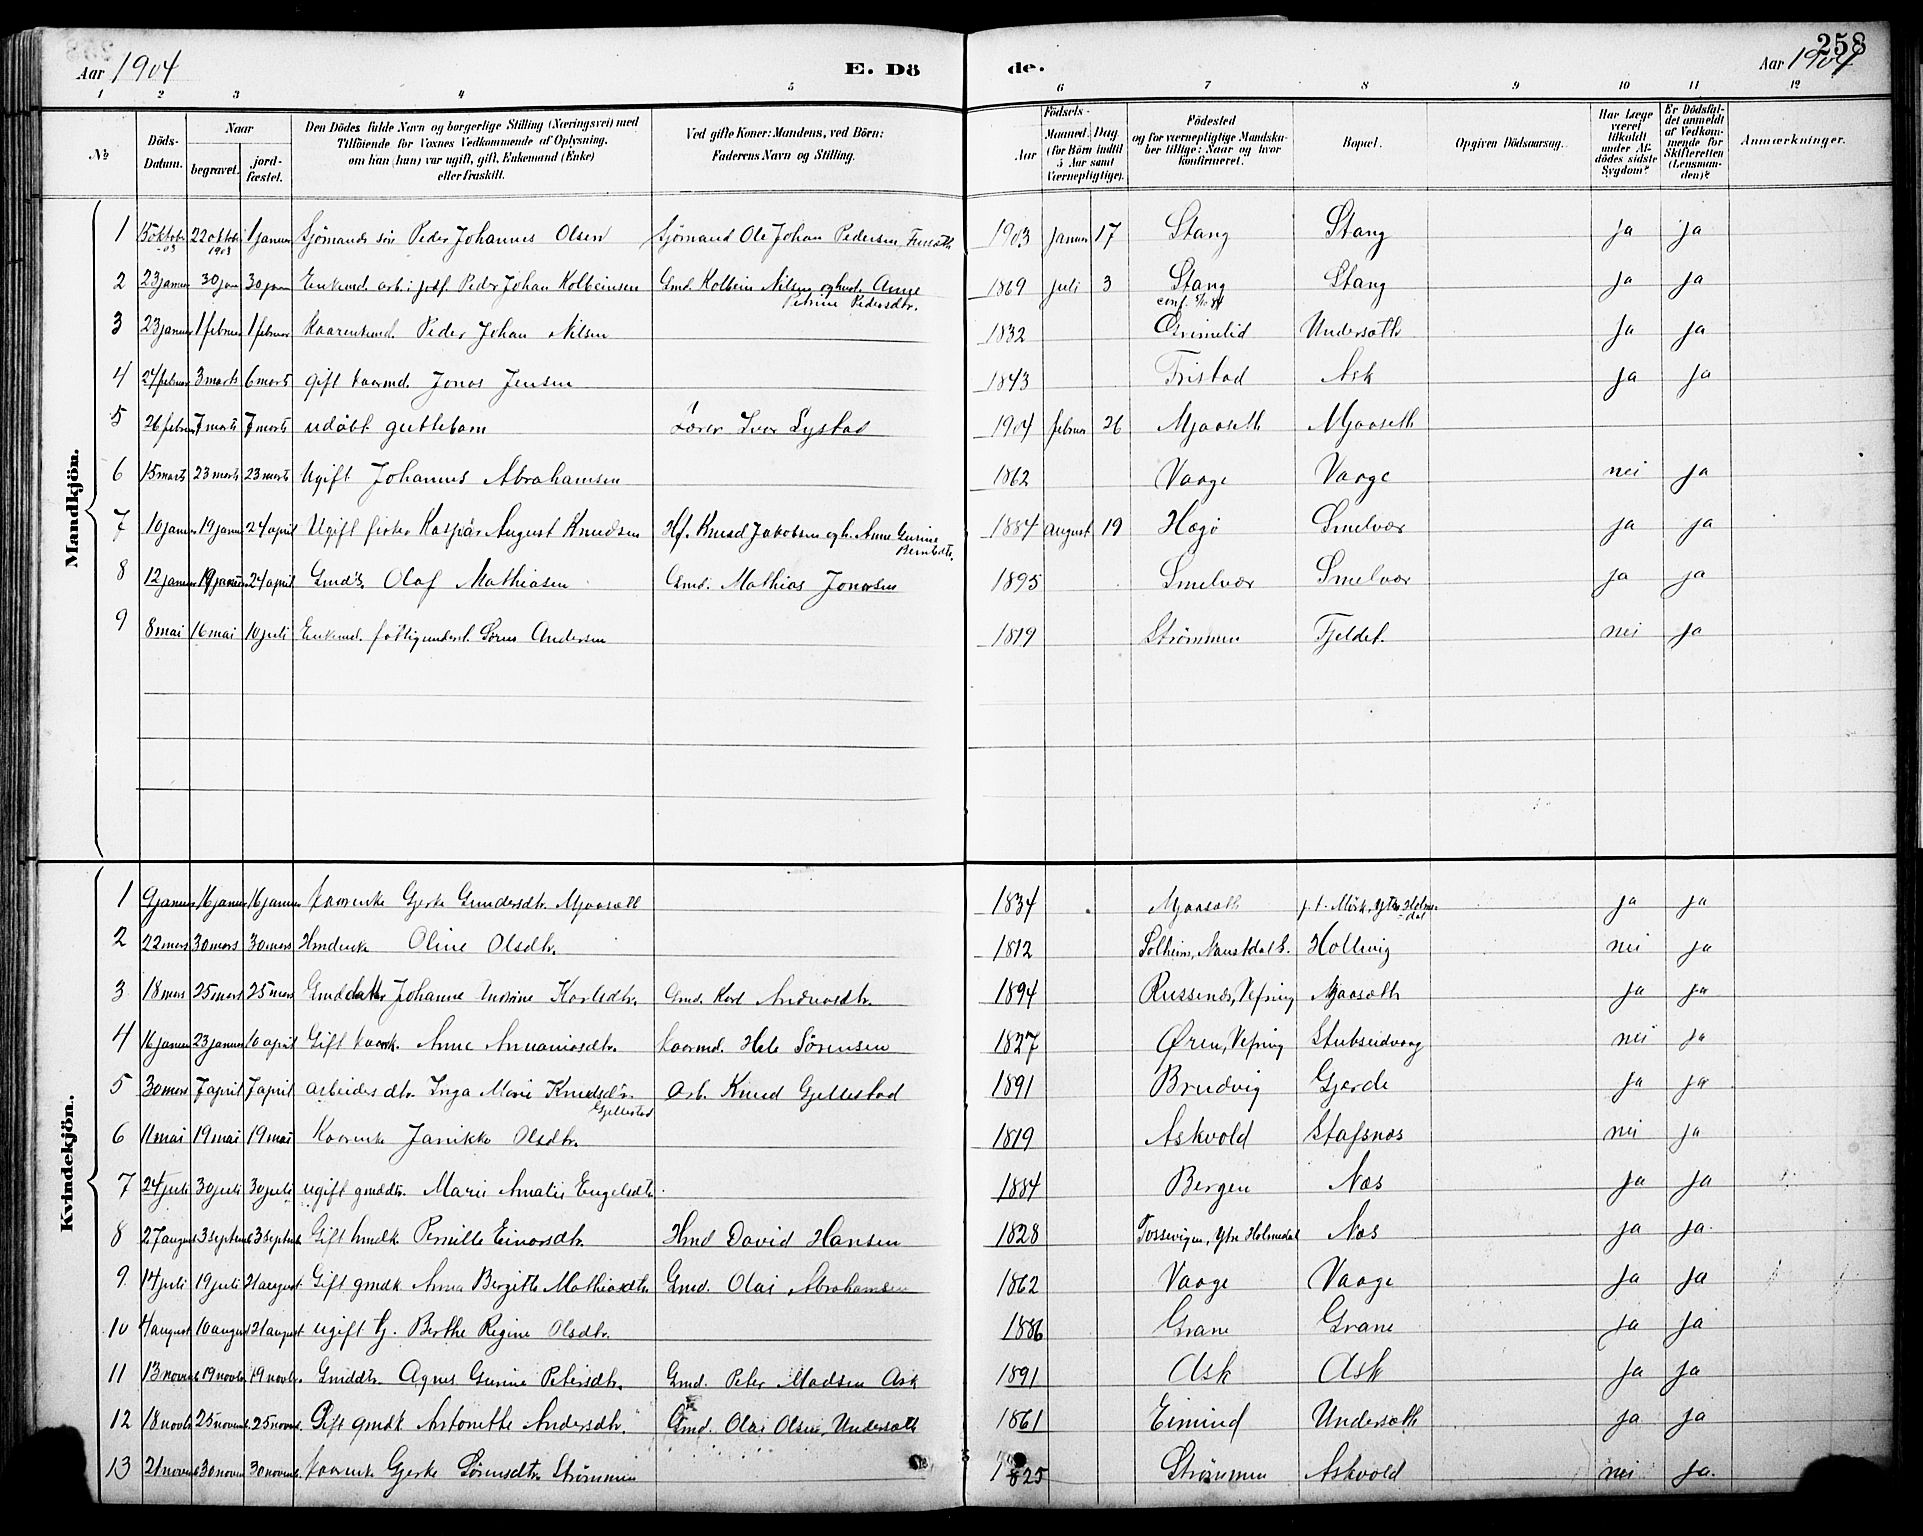 258
Aar 1904 E. Dö de. Aar 1904
1 2 3 4 5 6 7 8 9 10 11 12
No
Döds-Datum.
Naar
begravet.
jord-fæstet.
Den Dödes fulde Navn og borgerlige Stilling (Næringsvei) med
Tilföiende for Voxnes Vedkommende af Oplysning,
om han (hun) var ugift, gift, Enkemand (Enke)
eller fraskilt.
Ved gifte Koner: Mandens, ved Börn:
Faderens Navn og Stilling.
Födsels-
Aar
Maaned. Dag
(for Börn indtil
5 Aar samt
Værnepligtige).
Födested
og for værnepligtige Mandska-
ber tillige: Naar og hvor
konfirmeret.
Bopæl.
Opgiven Dödsaarsag.
Har Læge
været
tilkaldt
under Af-
dödes sidste
Sygdom?
Er Dödsfal-
det anmeldt
af Vedkom-
mende for
Skifteretten
(Lensman-
den)?
Anmærkninger.
Mandkjön.
1 15 oktobr 03 22 oktobr 1903 1 januar Sjömands sön Peder Johannes Olsen Sjömand Ole Johan Pedersen 1903 januar 17 Stang Stang ja ja
2 23 januar 30 jan 30 jan Enkemd. arb. Peder Johan Kolbeinsen Gmd. Kolbein Nilsen og hustr. Anne Petrine Pedersdtr. 1869 juli 3 Stang conf. Stang ja ja
3 23 januar 1 februar 1 februar Kaarenkemd. Peder Johan Nilsen 1832 Grimelid Undersæth ja ja
4 24 februar 3 marts 6 marts gift kaarmd. Jonas Jensen 1843 Fristad Ask ja ja
5 26 februar 7 marts 7 marts udöbt guttebarn Lærer Iver Systad 1904 februar 26 Mjaaseth Mjaaseth
6 15 marts 23 marts 23 marts Ugift Johannes Abrahamsen 1862 Vaage Vaage nei ja
7 10 januar 19 januar 24 april Ugift fisker Kaspar August Knudsen Hf. Knud Jakobsen og h. Anne Gurine Berntsdtr. 1884 august 19 Hægö Smelvær ja ja
8 12 januar 19 januar 24 april Gmds. Olaf Mathiasen Gmd. Mathias Jonassen 1895 Smelvær Smelvær ja ja
9 8 mai 16 mai 10 juli Enkemd. fattigunderst. Sörn Andersen 1819 Strömmen Fjeldet. nei ja
Kvindekjön.
1 9 januar 16 januar 16 januar kaarenke Gjerke Gundersdtr. Mjaasæth 1834 Mjaasæth p. t. Mörk, Ytre Holmedal ja ja
2 22 mars 30 mars 30 mars Hmdenke Oline Olsdtr. 1812 Solheim, Naustdal S. Hollevig nei ja
3 18 mars 25 mars 25 mars Gmddatter Johanne Andrine Karlsdtr. Gmd. Karl Andreasdtr. 1894 Russenes, Vefring Mjaasæth ja ja
4 16 januar 23 januar 10 april Gift kaark. Anne Ananiasdtr. kaarmd. Hele Sörensen 1827 Øren, Vefring Stubseidvaag nei ja
5 30 mars 7 april 7 april arbeidersdtr. Inga Marie Knudsdtr. Gjellestad Arb. Knud Gjellestad 1891 Brudvig Gjerde ja ja
6 11 mai 19 mai 19 mai Kaarenke Jannikke Olsdtr. 1819 Askvold Stafsnæs nei ja
7 24 juli 30 juli 30 juli ugift gmddtr. Marie Amalie Engelsdtr. 1884 Bergen Næs ja ja
8 27 august 3 septemb. 3 septemb. Gift hmdk. Pernille Einarsdtr. Hmd David Hansen 1828 Tossevigen, Ytre Holmedal Næs ja ja.
9 14 juli 19 juli 21 august Gift gmdk Anna Bergitte Mathiasdtr. Gmd. Olai Abrahamsen 1862 Vaage Vaage ja ja
10 4 august 10 august 21 august ugift tj. Berthe Regine Olsdtr. 1886 Grane Grane ja ja
11 13 novemb. 19 novbr. 19 novbr. Gmddtr. Agnes Gurine Petersdtr. Gmd. Peter Madsen Ask 1891 Ask Ask ja ja
12 18 novbr. 25 novemb. 25 novemb. Gift gmdk Antonette Andersdtr. Gmd. Olai Olsen, Undersæth 1861 Eimind Undersæth ja ja
13 21 novemb. 30 novemb. 30 novemb. kaarenke Gjerke Sörensdtr. Strömmen 1825 Strömmen Askvold nei ja.